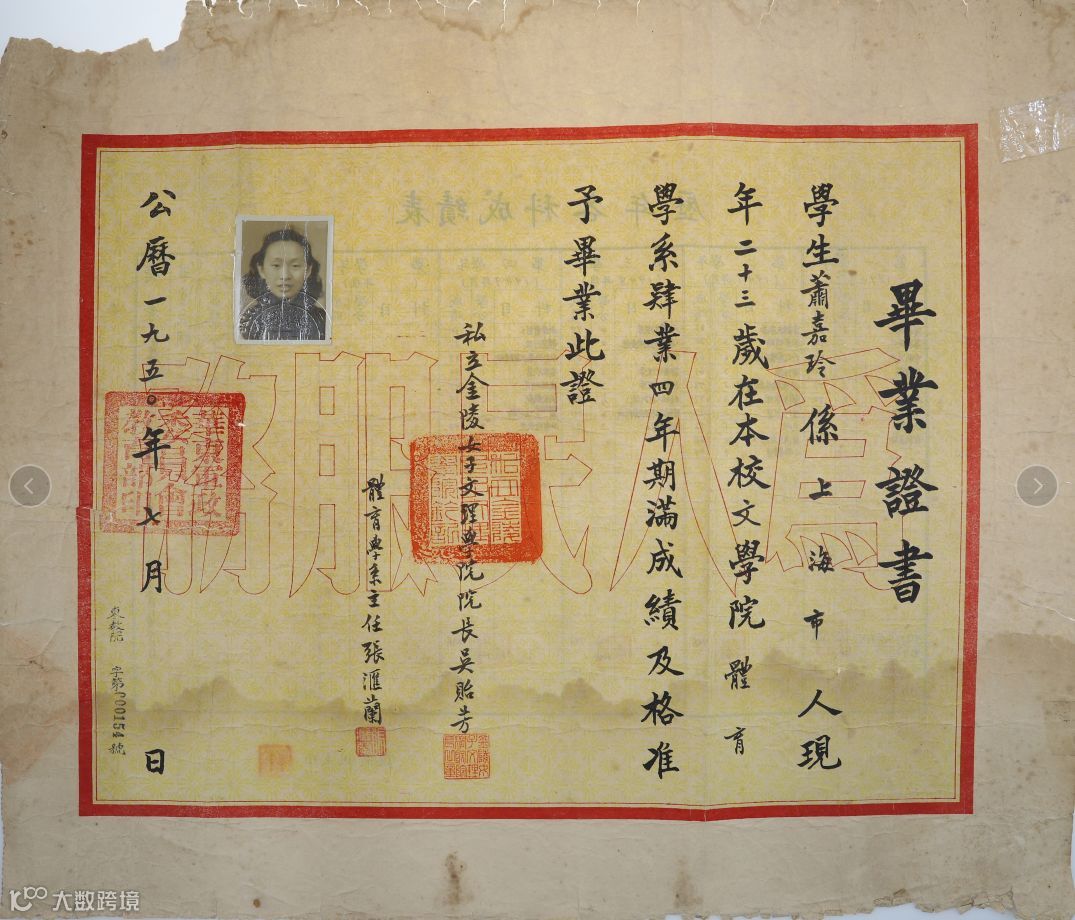 畢業證書
學生蕭嘉玲係上海市人現
年二十三歲在本校文學院體育
學系肄業四年期滿成績及格准
予畢業此證
私立金陵女子文理學院院長吳貽芳
體育學系主任張滙蘭
公曆一九五〇年七月 日
東教院 字第000154號
為人民服務
華東軍政委員會教育部印
歷年各科成績表
大数跨境